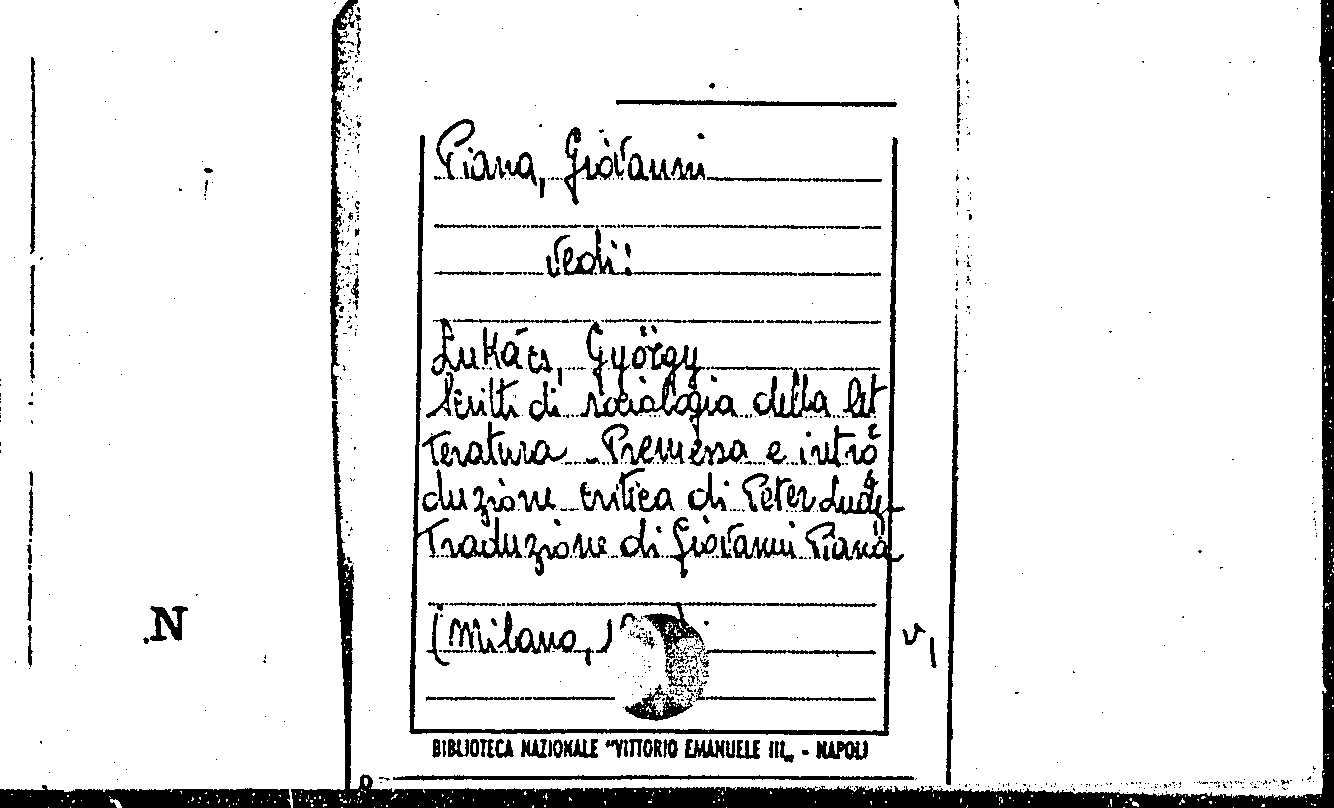 Piana, Giovanni
vedi:
Lukács, György
Scritti di sociologia della let
teratura. Premessa e intro
duzione critica di Peter Ludz
Traduzione di Giovanni Piana
(Milano,
N
BIBLIOTECA NAZIONALE "VITTORIO EMANUELE III„ - NAPOLI